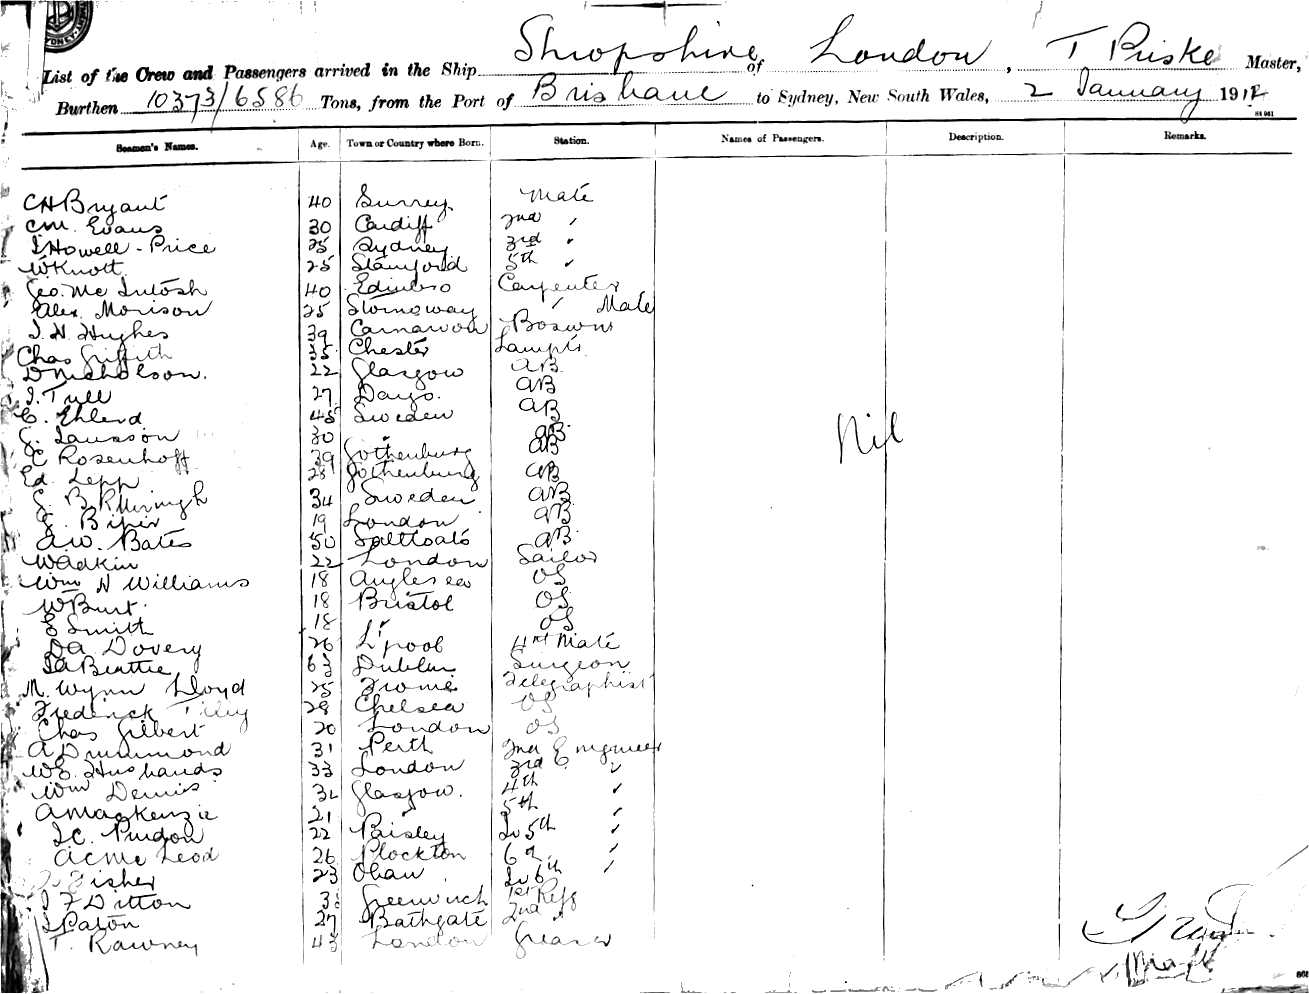 List of the Crew and Passengers arrived in the Ship Shropshire of London, T Priske Master,
Burthen 10373/6586 Tons, from the Port of Brisbane to Sydney, New South Wales, 2 January 1912
Seamen's Names. Age. Town or Country where Born. Station. Names of Passengers. Description. Remarks.
CH Bryant 40 Surrey Mate
CM. Evans 30 Cardiff 2nd "
J Howell-Price 25 Sydney 3rd "
W Knott 25 Stamford 5th "
Geo. Mc Intosh 40 Edinboro Carpenter
Alex. Morison 25 Stornoway " Mate
J. H Hughes 39 Carnarvon Boswns
Chas Griffith 35 Chester Lampts
D Nicholson. 22 Glasgow AB
J. Tull 27 AB
C. Ehlerd 45 Sweden AB
30 " AB
C Rosenhoff 39 Gothenburg AB
Ed Lepp 25 Gothenburg AB
34 Sweden AB
19 London AB
A.W. Bates 50 Saltcoats AB
W Adkin 22 London Sailor
Wm H Williams 18 Anglesea OS
W Burt. 18 Bristol OS
E Smith 18 " OS
DA Dovery 26 L'pool 4th Mate
JA Beattie 63 Dublin Surgeon
M. Wynn Lloyd 25 Frome Telegraphist
Frederick Tilley 28 Chelsea OS
Chas Gilbert 20 London OS
A Drummond 31 Perth 2nd Engineer
WE. Husbands 33 London 3rd "
Wm Dennis 32 Glasgow. 4th "
A Mackenzie 21 " 5th
J.C. Purdon 22 Paisley Jr 5th "
A C McLeod 26 Plockton 6th "
Fisher 23 Oban Jr 6th "
J F Ditton Greenwich 1st Refg
J Paton 27 Bathgate 2nd "
T. Rawney 43 London Greaser
Nil